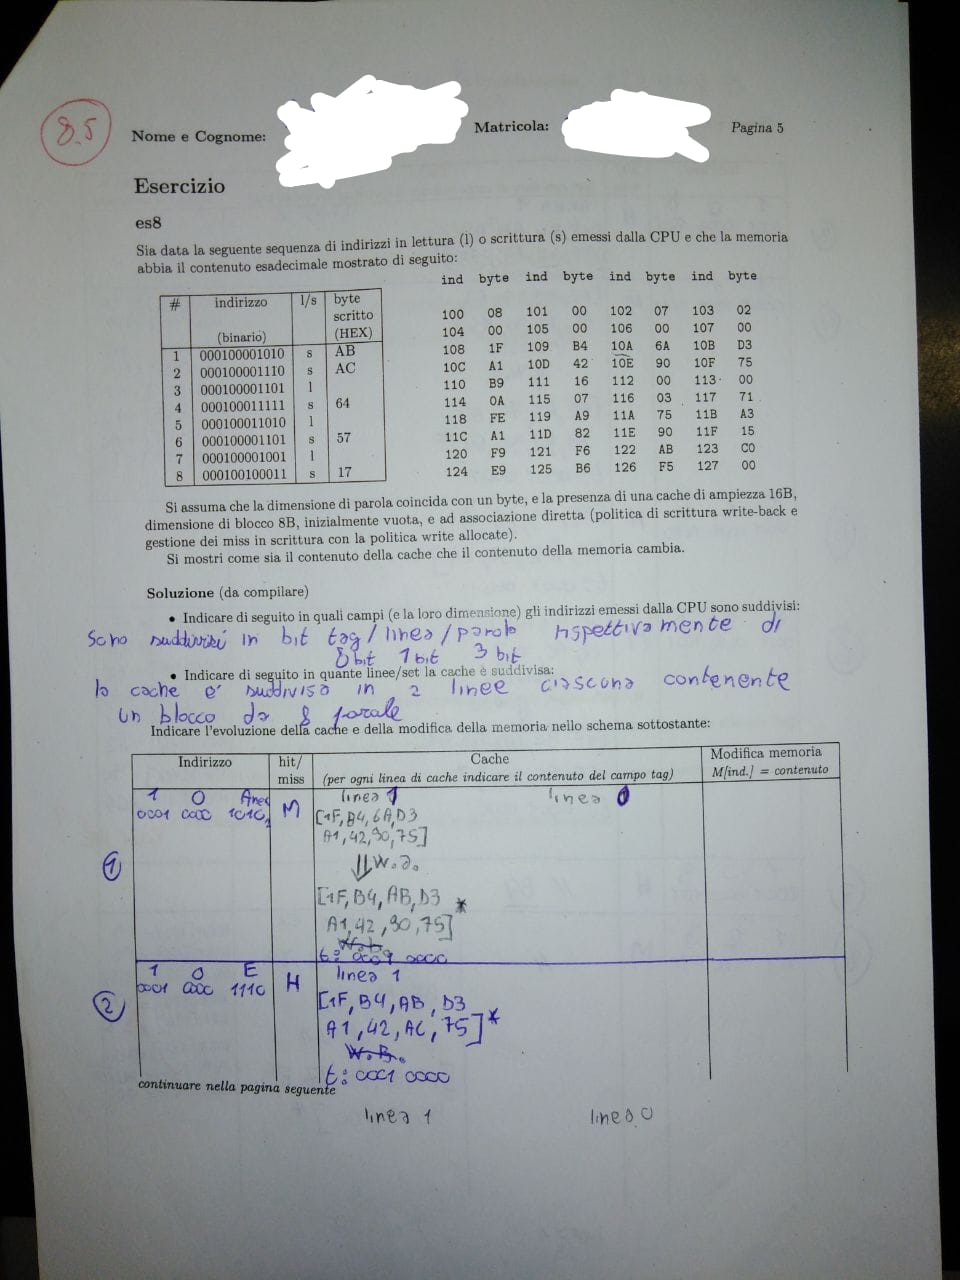 8.5
Nome e Cognome:
Matricola:
Pagina 5
Esercizio
es8
Sia data la seguente sequenza di indirizzi in lettura (l) o scrittura (s) emessi dalla CPU e che la memoria
abbia il contenuto esadecimale mostrato di seguito:
# indirizzo (binario) l/s byte scritto (HEX)
1 000100001010 s AB
2 000100001110 s AC
3 000100001101 l
4 000100011111 s 64
5 000100011010 l
6 000100001101 s 57
7 000100001001 l
8 000100100011 s 17
ind byte ind byte ind byte ind byte
100 08 101 00 102 07 103 02
104 00 105 00 106 00 107 00
108 1F 109 B4 10A 6A 10B D3
10C A1 10D 42 10E 90 10F 75
110 B9 111 16 112 00 113 00
114 0A 115 07 116 03 117 71
118 FE 119 A9 11A 75 11B A3
11C A1 11D 82 11E 90 11F 15
120 F9 121 F6 122 AB 123 C0
124 E9 125 B6 126 F5 127 00
Si assuma che la dimensione di parola coincida con un byte, e la presenza di una cache di ampiezza 16B,
dimensione di blocco 8B, inizialmente vuota, e ad associazione diretta (politica di scrittura write-back e
gestione dei miss in scrittura con la politica write allocate).
Si mostri come sia il contenuto della cache che il contenuto della memoria cambia.
Soluzione (da compilare)
• Indicare di seguito in quali campi (e la loro dimensione) gli indirizzi emessi dalla CPU sono suddivisi:
Sono suddivisi in bit tag/linea/parola rispettivamente di
8 bit 1 bit 3 bit
• Indicare di seguito in quante linee/set la cache è suddivisa:
la cache e' suddivisa in 2 linee ciascuna contenente
un blocco da 8 parole
Indicare l'evoluzione della cache e della modifica della memoria nello schema sottostante:
Indirizzo
hit/
miss
Cache
(per ogni linea di cache indicare il contenuto del campo tag)
Modifica memoria
M[ind.] = contenuto
1 0 A
linea 1
linea 0
0001 0000 1010
M
[1F, B4, 6A, D3
A1, 42, 90, 75]
⇓ W.a.
1
[1F, B4, AB, D3 *
A1, 42, 90, 75]
t: 0001 0000
1 0 E
linea 1
0001 0000 1110
H
[1F, B4, AB, D3
2
A1, 42, AC, 75] *
W.B.
t: 0001 0000
continuare nella pagina seguente
linea 1
linea 0